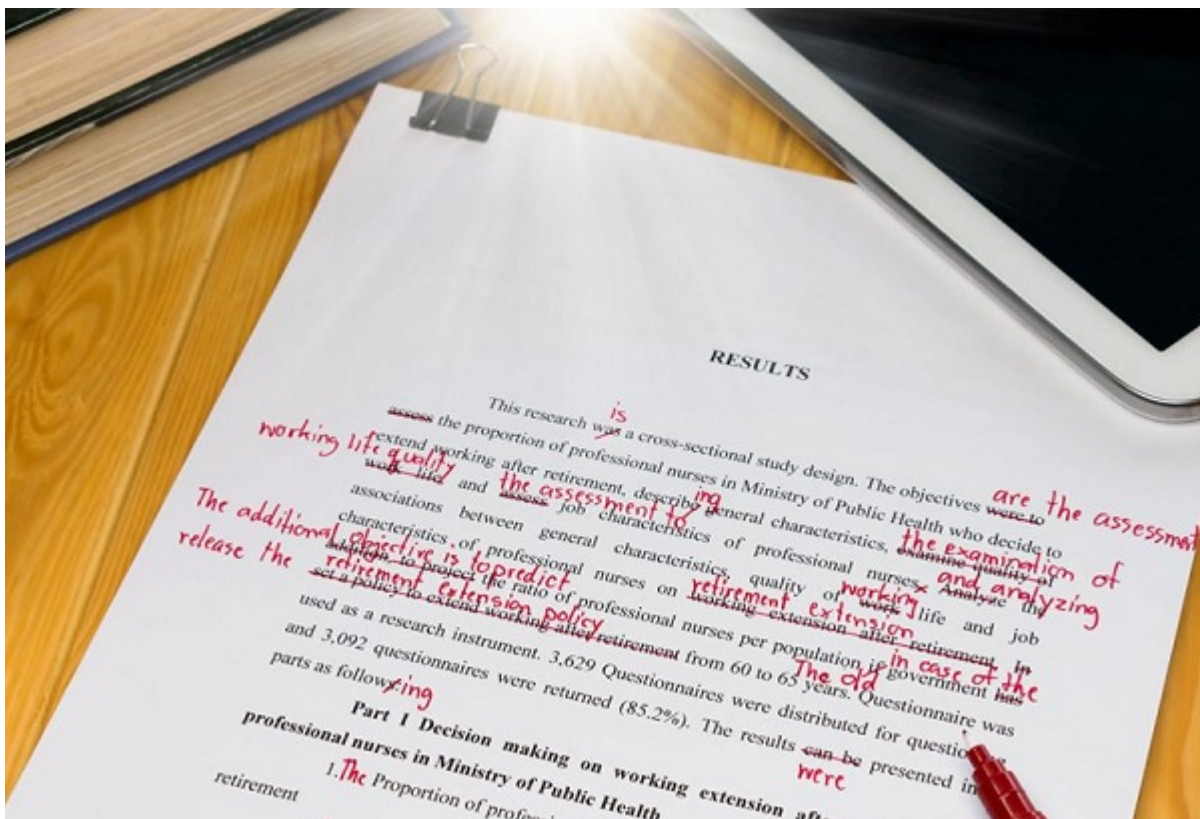 RESULTS
is
This research was a cross-sectional study design. The objectives were to
are the assessment
assess the proportion of professional nurses in Ministry of Public Health who decide to
working life quality
extend working after retirement, describe general characteristics, examine quality of
ing
the examination of
work life and assess job characteristics of professional nurses. Analyze the
the assessment to
and analyzing
associations between general characteristics, quality of work life and job
working
The additional objective is to predict
characteristics of professional nurses on working extension after retirement. In
retirement extension
to project the ratio of professional nurses per population if government has
in case of the
release the retirement extension policy
set a policy to extend working after retirement from 60 to 65 years. Questionnaire was
The old
used as a research instrument. 3,629 Questionnaires were distributed for
and 3,092 questionnaires were returned (85.2%). The results can be presented in
were
parts as follow
ing
Part I Decision making on working extension
professional nurses in Ministry of Public Health
1. The Proportion of
retirement